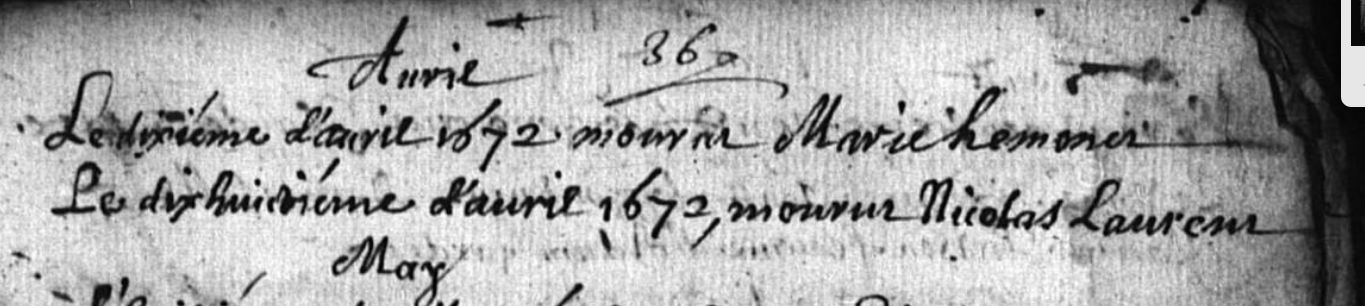 Auril 36
Le dixiéme d'auril 1672 mourut Marie hemonet
Le dixhuictiéme d'auril 1672, mourut Nicolas Laurent
May